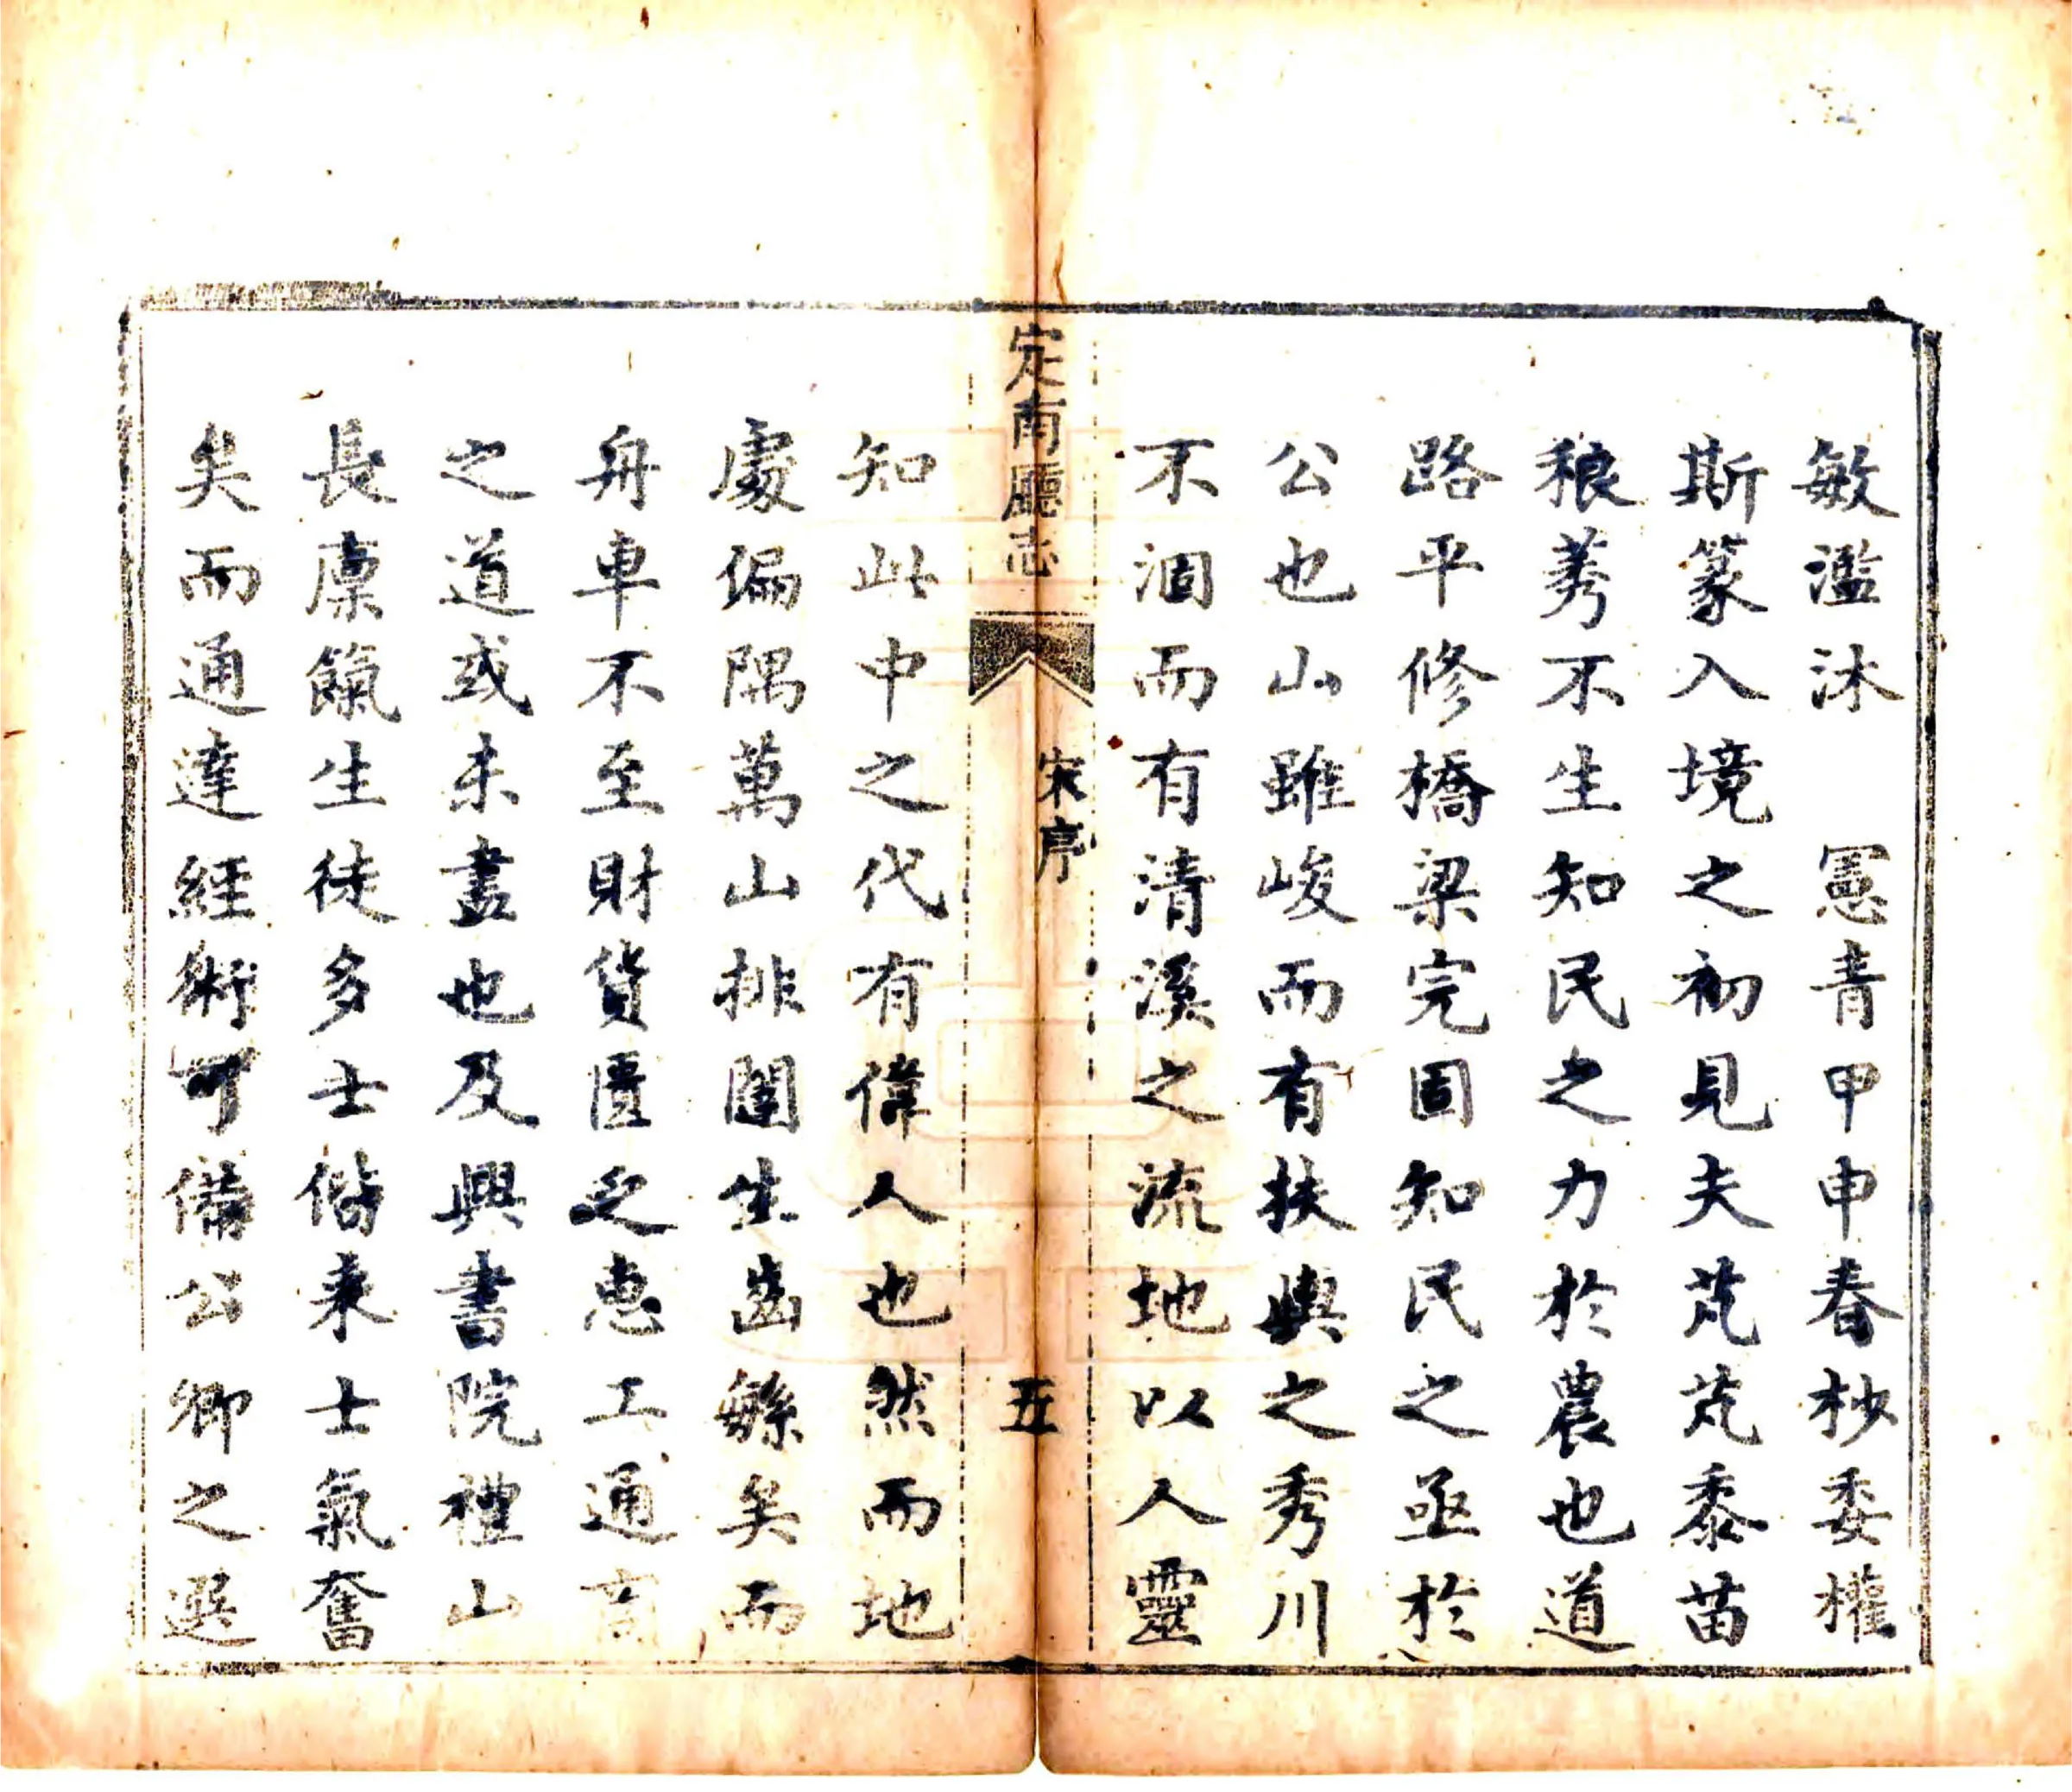 敏濫沐　憲青甲申春杪委權
斯篆入境之初見夫芃芃黍苗
稂莠不生知民之力於農也道
路平修橋梁完固知民之亟於
公也山雖峻而有扶輿之秀川
不涸而有清溪之流地以人靈
定南廳志
宋序
五
知此中之代有偉人也然而地
處偏隅萬山排闥生齒繁矣而
舟車不至財貨匱乏惠工通
之道或未盡也及興書院禮山
長廩餼生徒多士偕来士氣奮
矣而通達經術可備公卿之選